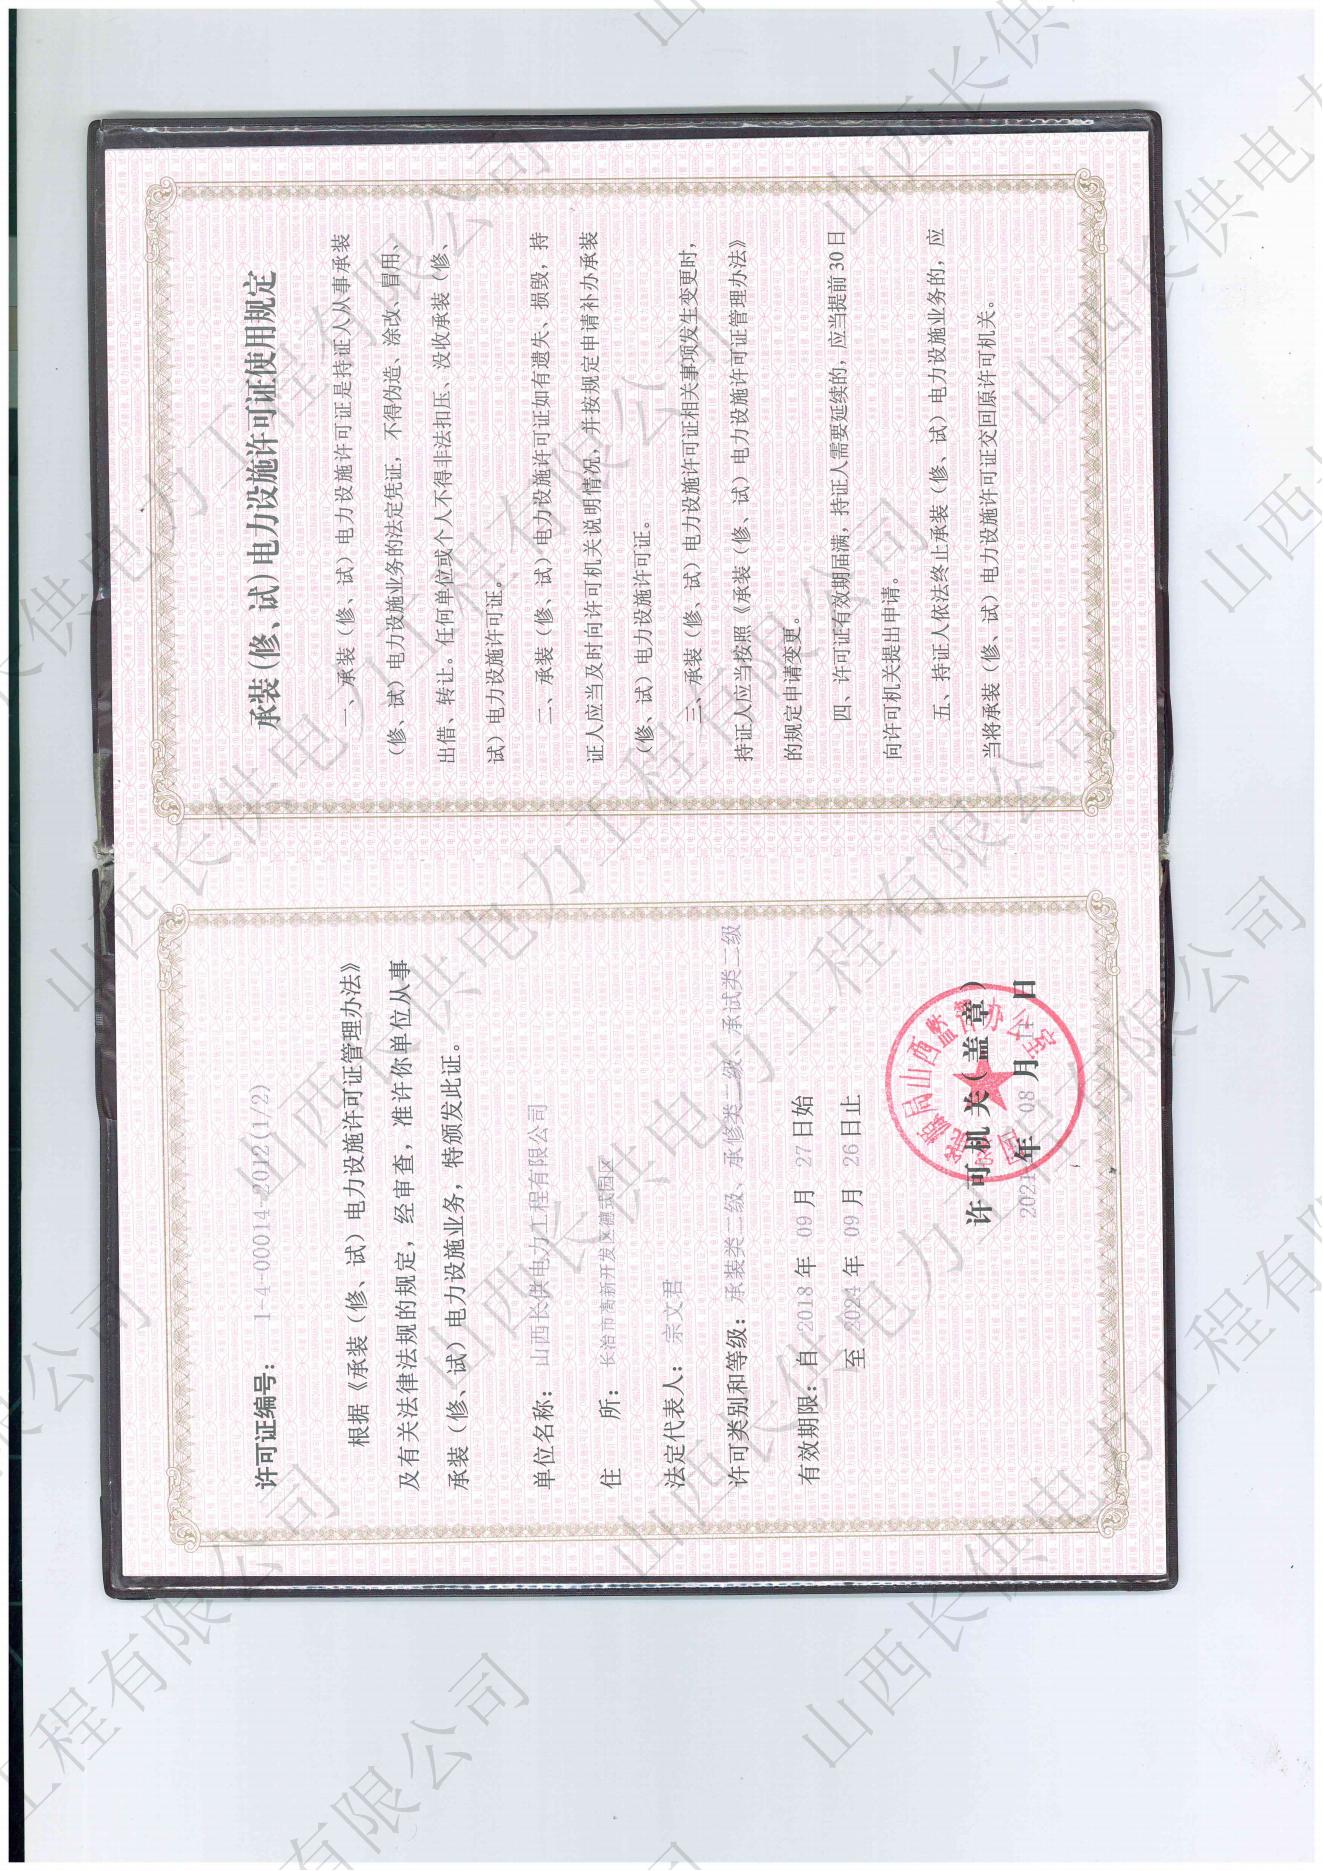 许可证编号： 1-4-00014-2012(1/2)
根据《承装（修、试）电力设施许可证管理办法》
及有关法律法规的规定，经审查，准许你单位从事
承装（修、试）电力设施业务，特颁发此证。
单位名称： 山西长供电力工程有限公司
住 所： 长治市高新开发区德式园区
法定代表人： 宗文君
许可类别和等级：承装类二级、承修类二级、承试类二级
有效期限：自 2018 年 09 月 27 日始
至 2024 年 09 月 26 日止
许可机关（盖章）
2021 年 08 月 日
国家能源局山西监管办公室
承装(修、试)电力设施许可证使用规定
一、承装（修、试）电力设施许可证是持证人从事承装
（修、试）电力设施业务的法定凭证，不得伪造、涂改、冒用、
出借、转让。任何单位或个人不得非法扣压、没收承装（修、
试）电力设施许可证。
二、承装（修、试）电力设施许可证如有遗失、损毁，持
证人应当及时向许可机关说明情况，并按规定申请补办承装
（修、试）电力设施许可证。
三、承装（修、试）电力设施许可证相关事项发生变更时，
持证人应当按照《承装（修、试）电力设施许可证管理办法》
的规定申请变更。
四、许可证有效期届满，持证人需要延续的，应当提前30日
向许可机关提出申请。
五、持证人依法终止承装（修、试）电力设施业务的，应
当将承装（修、试）电力设施许可证交回原许可机关。
山西长供电力工程有限公司